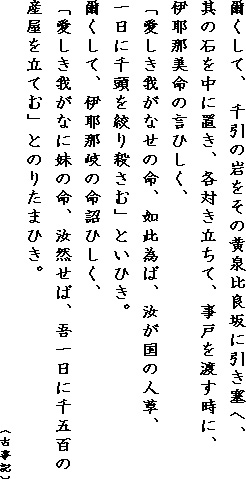 爾くして、千引の岩をその黄泉比良坂に引き塞へ、
其の石を中に置き、各対き立ちて、事戸を渡す時に、
伊耶那美命の言ひしく、
「愛しき我がなせの命、如此為ば、汝が国の人草、
一日に千頭を絞り殺さむ」といひき。
爾くして、伊耶那岐の命詔ひしく、
「愛しき我がなに妹の命、汝然せば、吾一日に千五百の
産屋を立てむ」とのりたまひき。
（古事記）